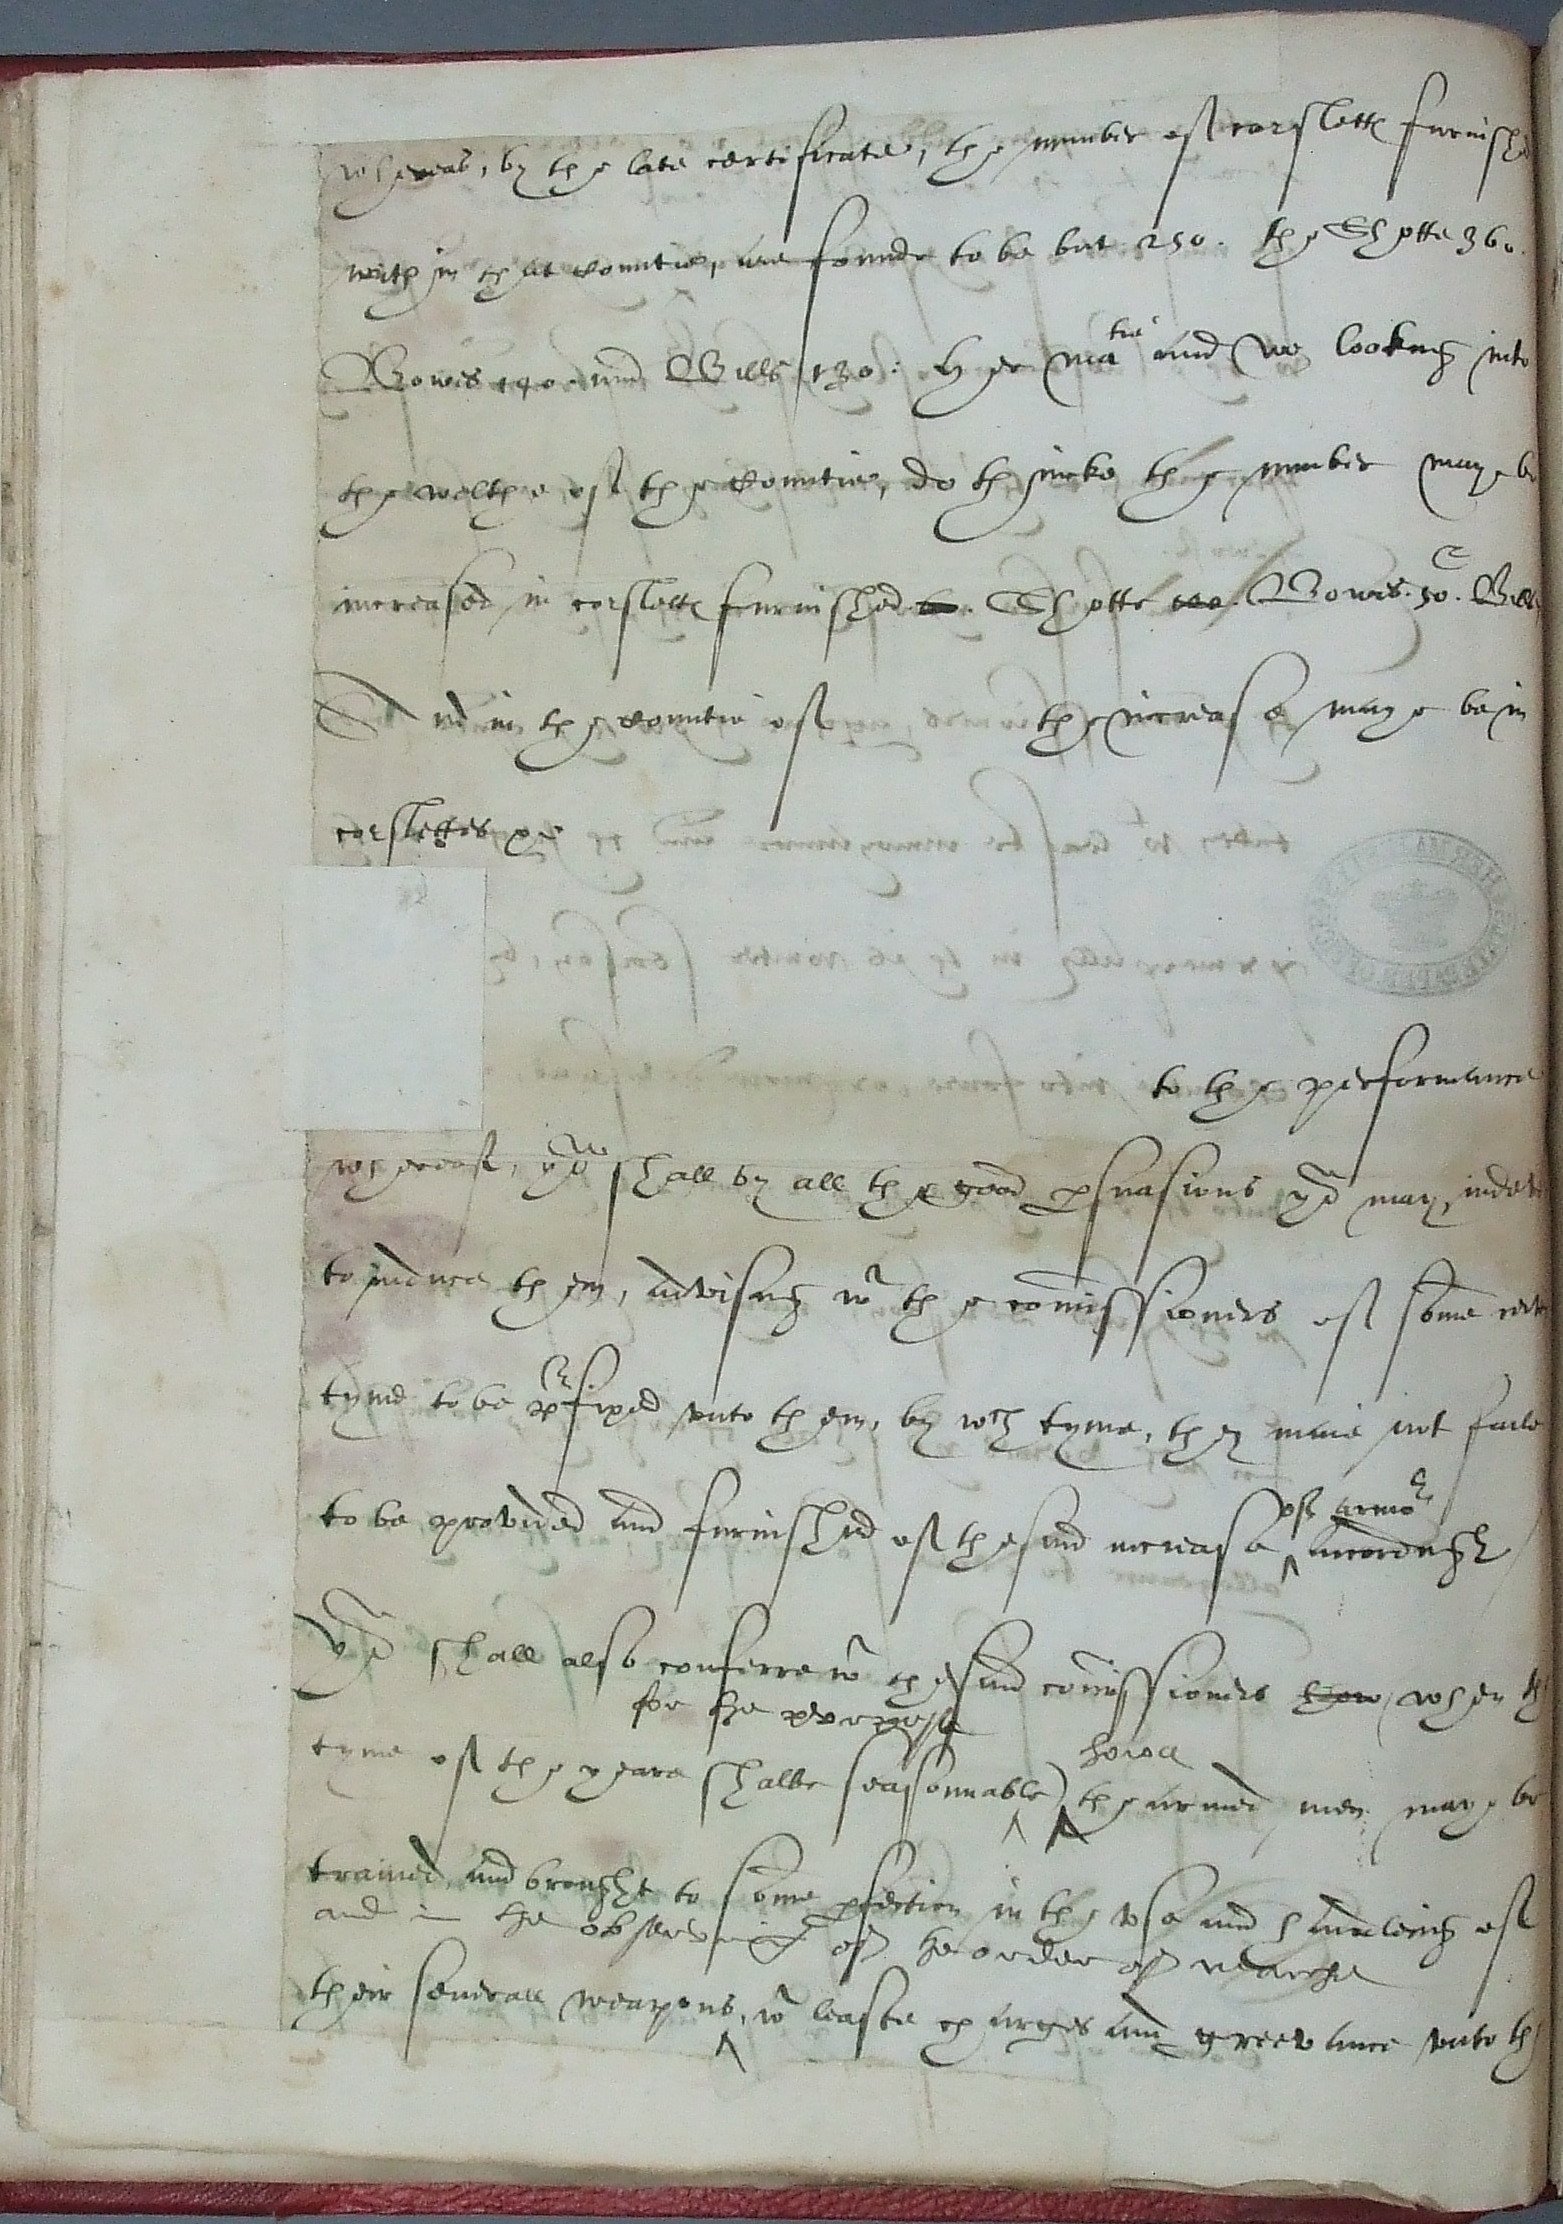 whereas, by the late certificate, the number of corslette furnishe
with in that countie, are founde to be but 250. the Shotte 360.
Bowes 140. and Bills 130: Her ma tie and we lookng into
the welthe of the countie, do thincke the number maye be
increased in corslette furnished Shotte 100. Bowes. 50. Bills
And in the countie of the increase maye be in
corslettes
to the performance
whereof, yow shall by all the good pswasions yow may, indev
to induce them, advisng wt the comissioners of some cert
tyme to be prefixed vnto them, by wch tyme, they maie not faile
to be provided and furnished of the said increase of armor accordingly
Yow shall also conferre wt the said comissioners how, when th
for the purpose
tyme of the yeare shalbe seasonnable) howe the armed men maye be
trained, and brought to some pfection in the vse and handleing of
and in the observing of the order of marche
their severall weapons, wt leaste charges and greevance vnto th